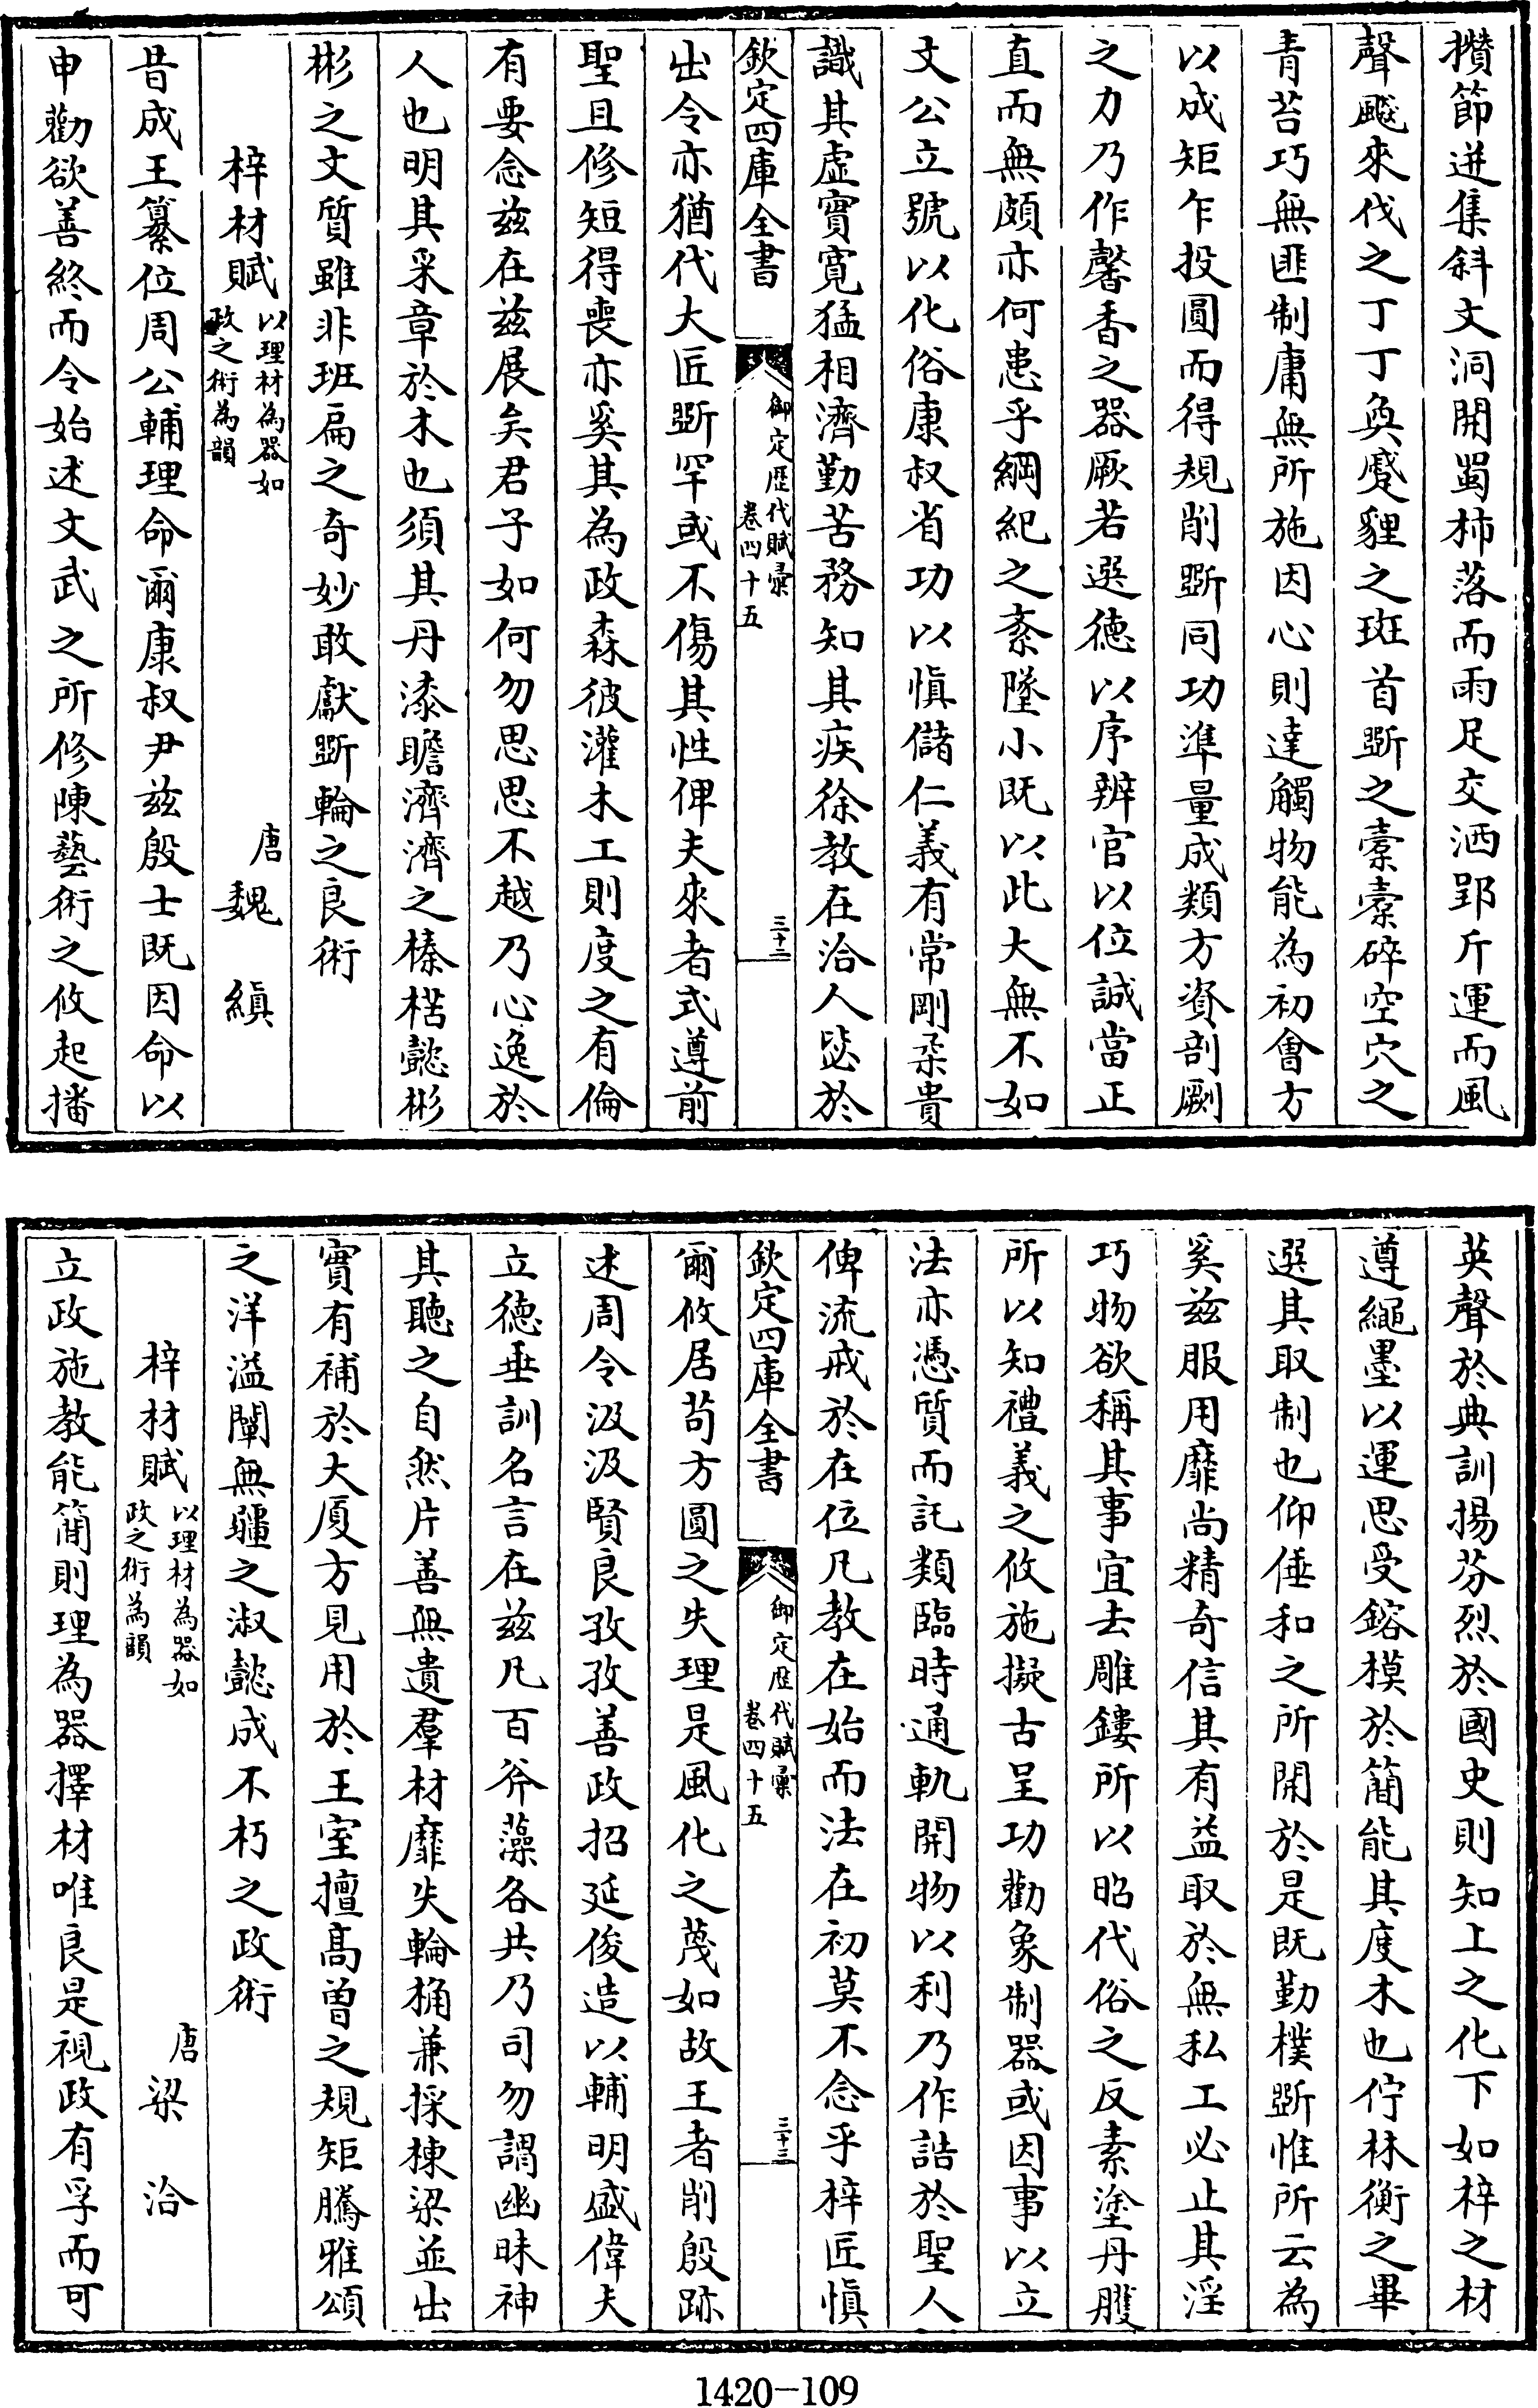 攢節迸集斜文洞開蜀柿落而雨足交洒郢斤運而風
聲颷來伐之丁丁奐蹙貍之斑首斲之橐橐碎空穴之
青苔巧無匪制庸無所施因心則達觸物能為初會方
以成矩乍投圓而得規削斲同功準量成類方資剖劂
之力乃作馨香之器厥若選德以序辨官以位誠當正
直而無頗亦何患乎綱紀之紊墜小既以此大無不如
文公立號以化俗康叔省功以慎儲仁義有常剛柔貴
識其虛實寬猛相濟勤苦務知其疾徐教在洽人毖於
欽定四庫全書
御定歷代賦彙
卷四十五
三十二
出令亦猶代大匠斲罕或不傷其性俾夫來者式遵前
聖且修短得喪亦奚其為政森彼灌木工則度之有倫
有要念兹在兹展矣君子如何勿思思不越乃心逸於
人也明其采章於木也須其丹漆瞻濟濟之榛楛懿彬
彬之文質雖非班扁之奇妙敢獻斲輪之良術
梓材賦
以理材為器如
政之術為韻
唐 魏 縝
昔成王纂位周公輔理命爾康叔尹兹殷士既因命以
申勸欲善終而令始述文武之所修陳藝術之攸起播
英聲於典訓揚芬烈於國史則知上之化下如梓之材
遵繩墨以運思受鎔模於簡能其度木也佇林衡之畢
選其取制也仰倕和之所開於是既勤樸斲惟所云為
奚兹服用靡尚精奇信其有益取於無私工必止其淫
巧物欲稱其事宜去雕鏤所以昭代俗之反素塗丹雘
所以知禮義之攸施擬古呈功勸象制器或因事以立
法亦憑質而託類臨時通軌開物以利乃作誥於聖人
俾流戒於在位凡教在始而法在初莫不念乎梓匠慎
欽定四庫全書
御定歷代賦彙
卷四十五
三十三
爾攸居苟方圓之失理是風化之蔑如故王者削殷跡
述周令汲汲賢良孜孜善政招延俊造以輔明盛偉夫
立德垂訓名言在兹凡百斧藻各共乃司勿謂幽昧神
其聽之自然片善無遺羣材靡失輪桷兼採棟梁並出
實有補於大厦方見用於王室擅高曾之規矩騰雅頌
之洋溢闡無疆之淑懿成不朽之政術
梓材賦
以理材為器如
政之術為韻
唐 梁 洽
立政施教能簡則理為器擇材唯良是視政有孚而可
1420-109